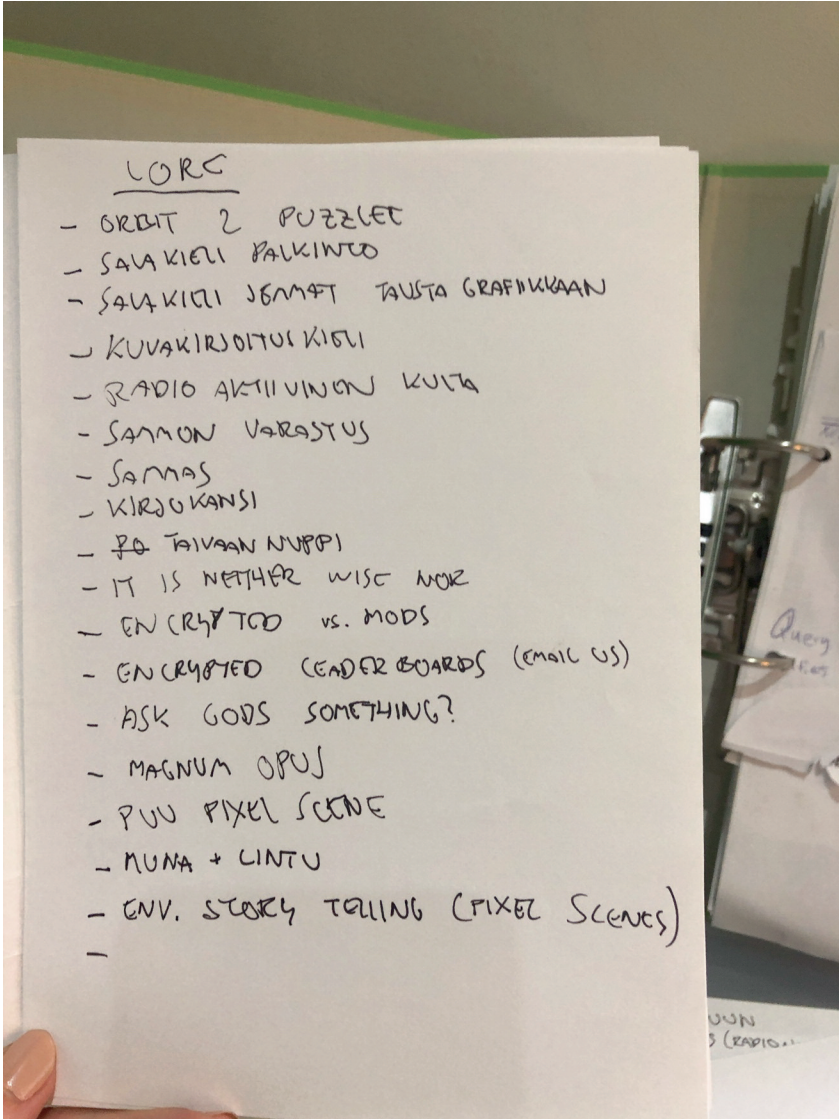 LORE
- ORBIT 2 PUZZLET
- SALAKIELI PALKINTO
- SALAKIELI JEMMAT TAUSTA GRAFIIKKAAN
- KUVAKIRJOITUS KIELI
- RADIO AKTIIVINEN KULTA
- SAMMON VARASTUS
- SAMMAS
- KIRJOKANSI
- TAIVAAN NUPPI
- IT IS NEITHER WISE NOR
- ENCRYPTED vs. MODS
- ENCRYPTED LEADER BOARDS (EMAIL US)
- ASK GODS SOMETHING?
- MAGNUM OPUS
- PUU PIXEL SCENE
- MUNA + LINTU
- ENV. STORY TELLING (PIXEL SCENES)
-
Query
UUN
(RADIO